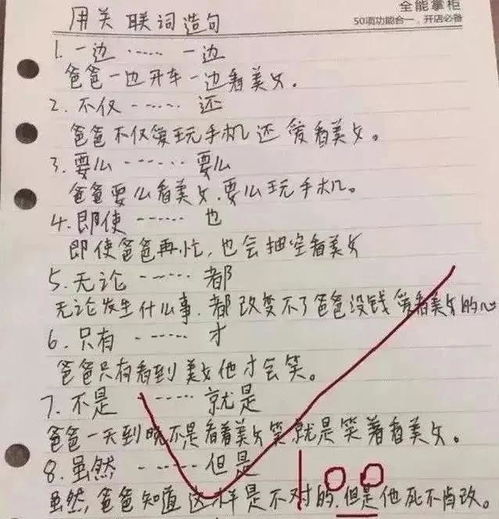 全能掌柜
50项功能合一，开店必备
用关联词造句
1. 一边 …… 一边
爸爸一边开车一边看美女.
2. 不仅 …… 还
爸爸不仅爱玩手机还爱看美女。
3. 要么 …… 要么
爸爸要么看美女,要么玩手机。
4. 即使 …… 也
即使爸爸再忙,也会抽空看美女
5. 无论 …… 都
无论发生什么事,都改变不了爸爸没钱爱看美女的心
6. 只有 …… 才
爸爸只有看到美女他才会笑。
7. 不是 …… 就是
爸爸一天到晚不是看着美女笑就是笑着看美女。
8. 虽然 …… 但是
虽然,爸爸知道这样是不对的,但是他死不肯改。
100